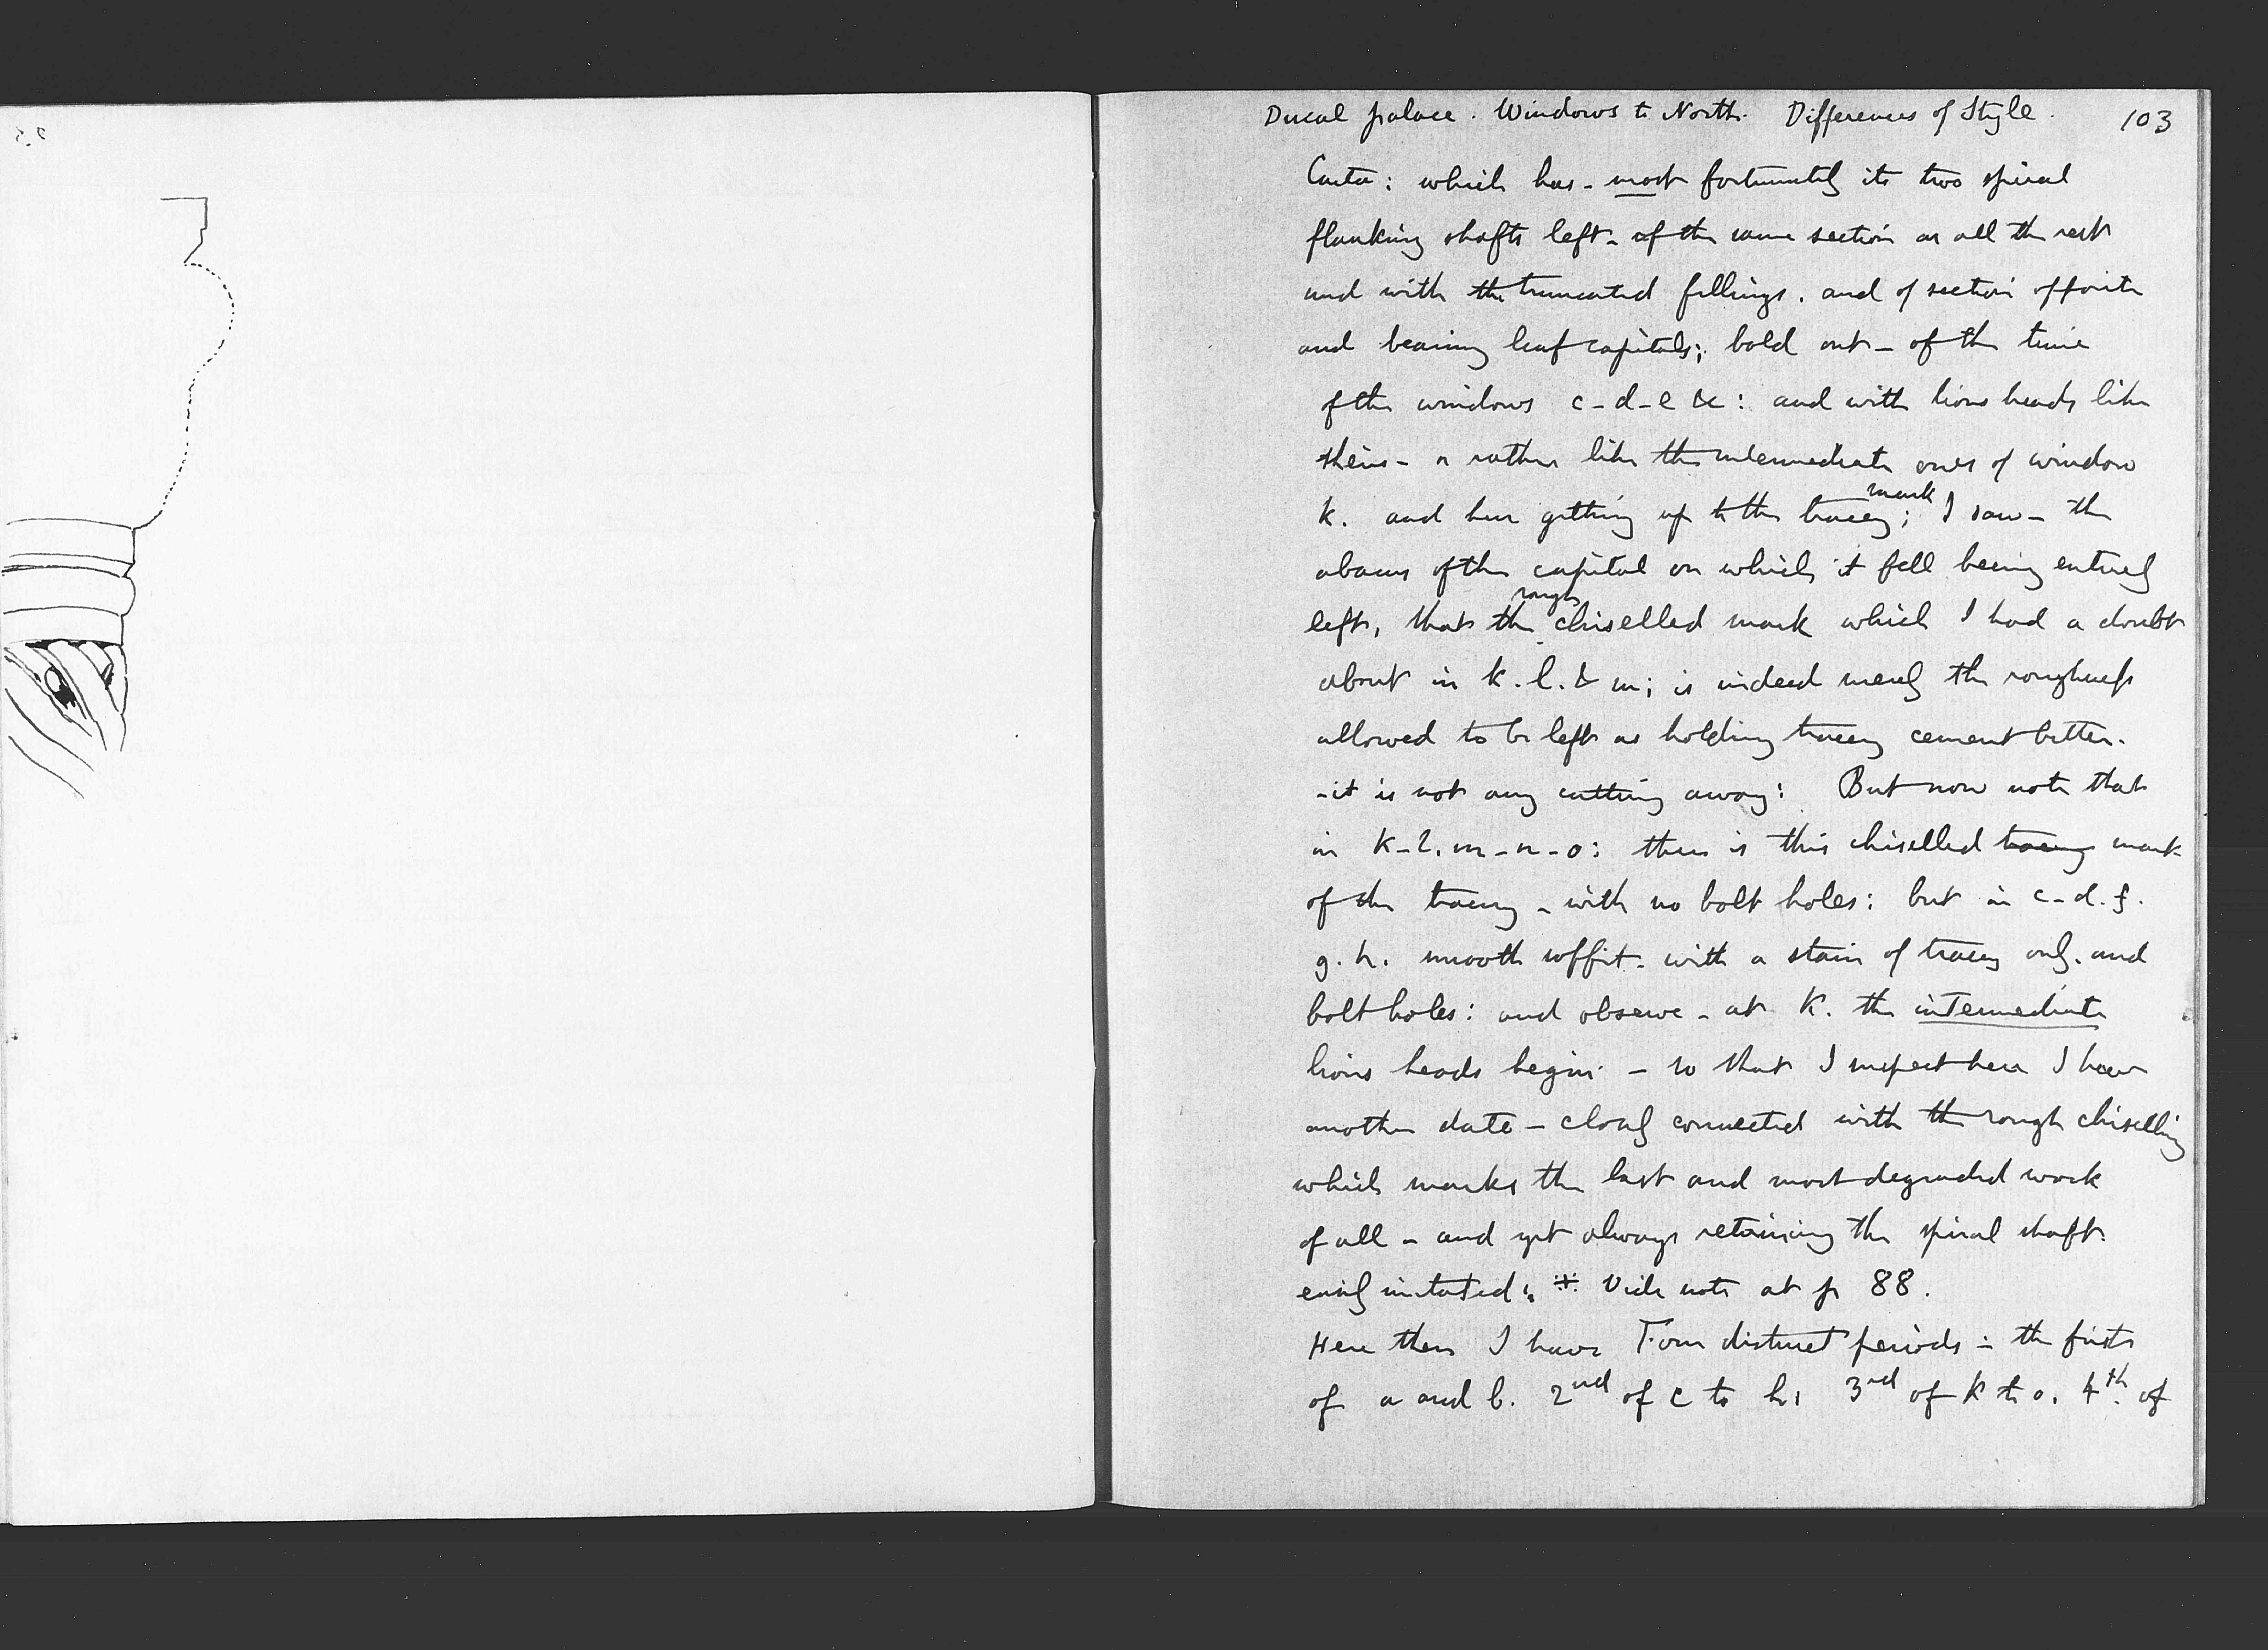 Ducal palace. Windows to North. Differences of Style. 103
Carta: which has - most fortunately its two spiral
flanking shafts left - of the same section as all the rest
and with the truncated fillings. and of section opposite
and bearing leaf capitals; bold out - of the time
of the windows c-d-e &c: and with lions heads like
theirs - or rather like the intermediate ones of window
k. and here getting up to the tracery mark; I saw - the
abacus of the capital on which it fell being entirely
left, that the rough chiselled mark which I had a doubt
about in k. l. & m; is indeed merely the roughness
allowed to be left as holding tracery cement better.
- it is not any cutting away: But now note that
in k-l. m-n-o: there is this chiselled tracery mark
of the tracery - with no bolt holes: but in c-d. f.
g. h. smooth soffit - with a stain of tracery only. and
bolt holes: and observe - at k. the intermediate
lions heads begin - so that I suspect here I have
another date - closely connected with the rough chiselling
which marks the last and most degraded work
of all - and yet always retaining the spiral shaft.
easily imitated. * Vide note at p 88.
Here then I have Four distinct periods: the first
of a and b. 2nd of c to h: 3rd of k to o. 4th. of